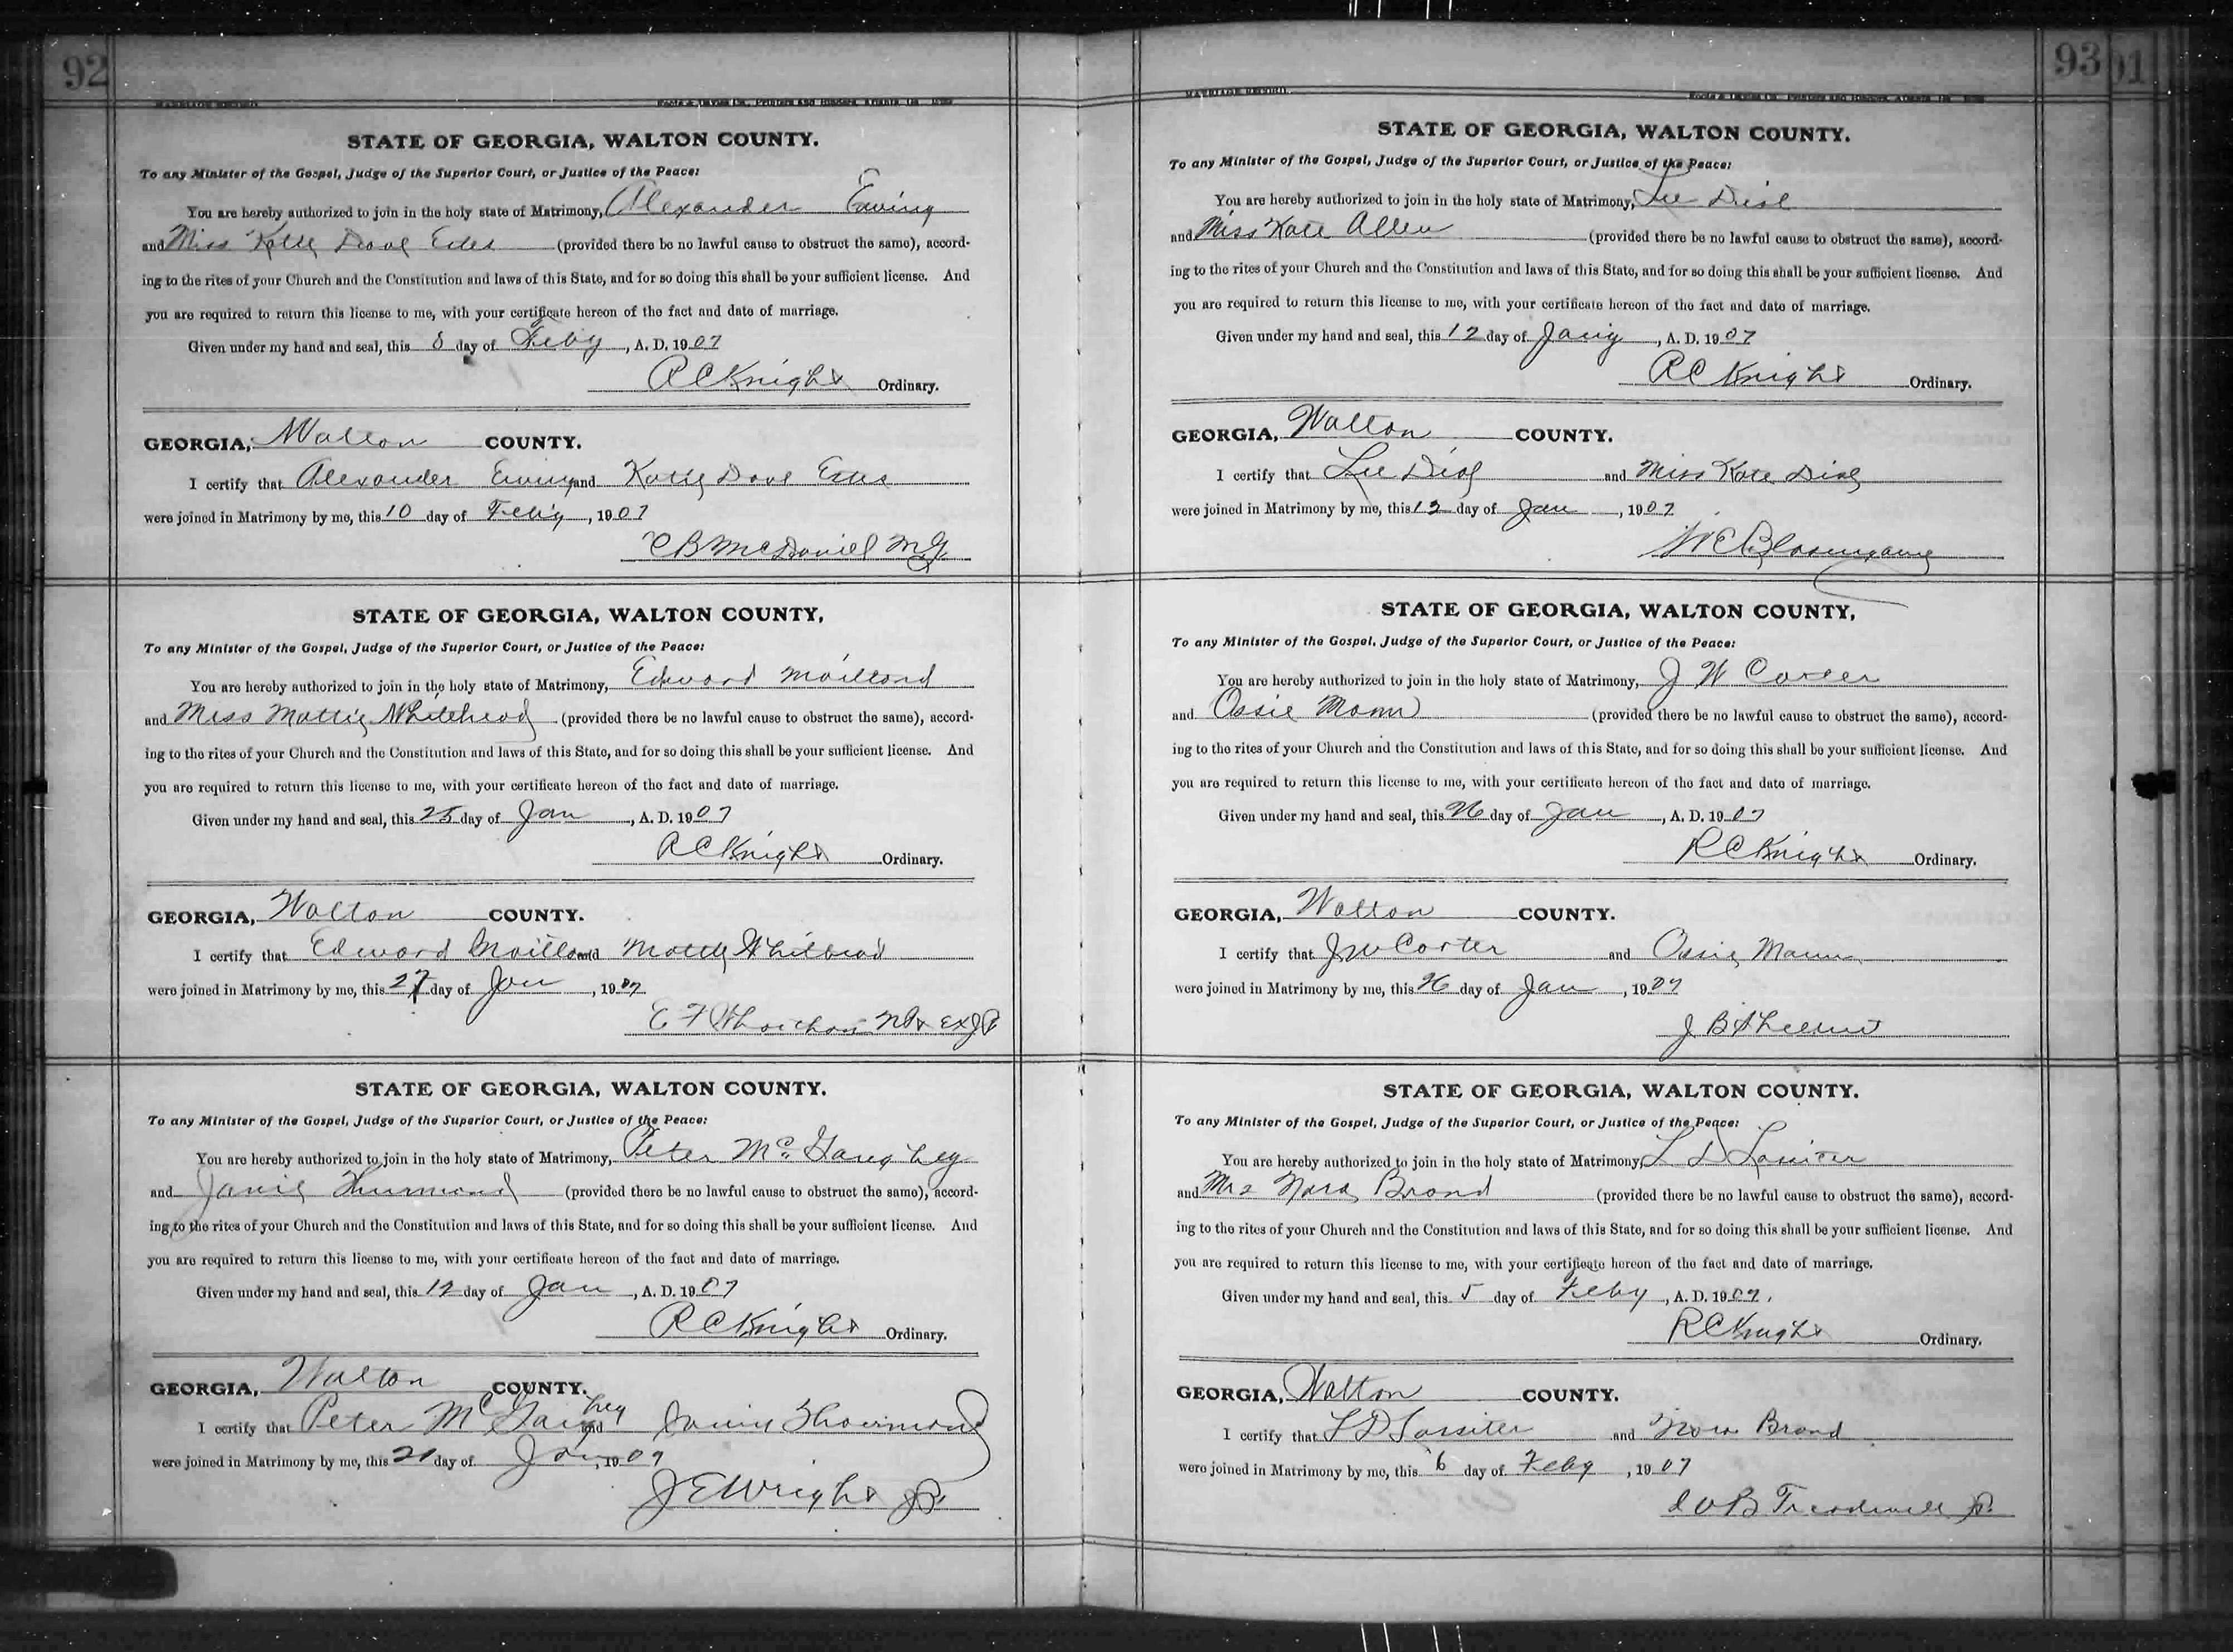 92
MARRIAGE RECORD.
STATE OF GEORGIA, WALTON COUNTY.
To any Minister of the Gospel, Judge of the Superior Court, or Justice of the Peace:
You are hereby authorized to join in the holy state of Matrimony, Alexander Ewing
and Miss Katie Dove Estes (provided there be no lawful cause to obstruct the same), accord-
ing to the rites of your Church and the Constitution and laws of this State, and for so doing this shall be your sufficient license. And
you are required to return this license to me, with your certificate hereon of the fact and date of marriage.
Given under my hand and seal, this 8 day of Feby, A. D. 1907
R C Knight Ordinary.
GEORGIA, Walton COUNTY.
I certify that Alexander Ewing and Katie Dove Estes
were joined in Matrimony by me, this 10 day of Feby, 1907
C B McDaniel MG
STATE OF GEORGIA, WALTON COUNTY,
To any Minister of the Gospel, Judge of the Superior Court, or Justice of the Peace:
You are hereby authorized to join in the holy state of Matrimony, Edward
and Miss Mattie Whitehead (provided there be no lawful cause to obstruct the same), accord-
ing to the rites of your Church and the Constitution and laws of this State, and for so doing this shall be your sufficient license. And
you are required to return this license to me, with your certificate hereon of the fact and date of marriage.
Given under my hand and seal, this 25 day of Jan, A. D. 1907
R C Knight Ordinary.
GEORGIA, Walton COUNTY.
I certify that Edward and Whitehead
were joined in Matrimony by me, this 27 day of Jan, 1907
E F
STATE OF GEORGIA, WALTON COUNTY.
To any Minister of the Gospel, Judge of the Superior Court, or Justice of the Peace:
You are hereby authorized to join in the holy state of Matrimony, Peter McGaughey
and Janie Thurmond (provided there be no lawful cause to obstruct the same), accord-
ing to the rites of your Church and the Constitution and laws of this State, and for so doing this shall be your sufficient license. And
you are required to return this license to me, with your certificate hereon of the fact and date of marriage.
Given under my hand and seal, this 12 day of Jan, A. D. 1907
R C Knight Ordinary.
GEORGIA, Walton COUNTY.
I certify that Peter McGaughey and Janie Thurmond
were joined in Matrimony by me, this day of Jan, 1907
J E Wright JP
93
MARRIAGE RECORD.
STATE OF GEORGIA, WALTON COUNTY.
To any Minister of the Gospel, Judge of the Superior Court, or Justice of the Peace:
You are hereby authorized to join in the holy state of Matrimony, Lee Dial
and Miss Kate Allen (provided there be no lawful cause to obstruct the same), accord-
ing to the rites of your Church and the Constitution and laws of this State, and for so doing this shall be your sufficient license. And
you are required to return this license to me, with your certificate hereon of the fact and date of marriage.
Given under my hand and seal, this 12 day of Jany, A. D. 1907
R C Knight Ordinary.
GEORGIA, Walton COUNTY.
I certify that Lee Dial and Miss Kate Dial
were joined in Matrimony by me, this day of Jan, 1907
STATE OF GEORGIA, WALTON COUNTY,
To any Minister of the Gospel, Judge of the Superior Court, or Justice of the Peace:
You are hereby authorized to join in the holy state of Matrimony, J W Carter
and Ossie Mann (provided there be no lawful cause to obstruct the same), accord-
ing to the rites of your Church and the Constitution and laws of this State, and for so doing this shall be your sufficient license. And
you are required to return this license to me, with your certificate hereon of the fact and date of marriage.
Given under my hand and seal, this 26 day of Jan, A. D. 1907
R C Knight Ordinary.
GEORGIA, Walton COUNTY.
I certify that J W Carter and Ossie Mann
were joined in Matrimony by me, this 26 day of Jan, 1907
J B
STATE OF GEORGIA, WALTON COUNTY.
To any Minister of the Gospel, Judge of the Superior Court, or Justice of the Peace:
You are hereby authorized to join in the holy state of Matrimony, L D Lassiter
and Mrs Nora Brand (provided there be no lawful cause to obstruct the same), accord-
ing to the rites of your Church and the Constitution and laws of this State, and for so doing this shall be your sufficient license. And
you are required to return this license to me, with your certificate hereon of the fact and date of marriage.
Given under my hand and seal, this 5 day of Feby, A. D. 1907.
R C Knight Ordinary.
GEORGIA, Walton COUNTY.
I certify that L D Lassiter and Nora Brand
were joined in Matrimony by me, this 6 day of Feby, 1907
Treadwell JP